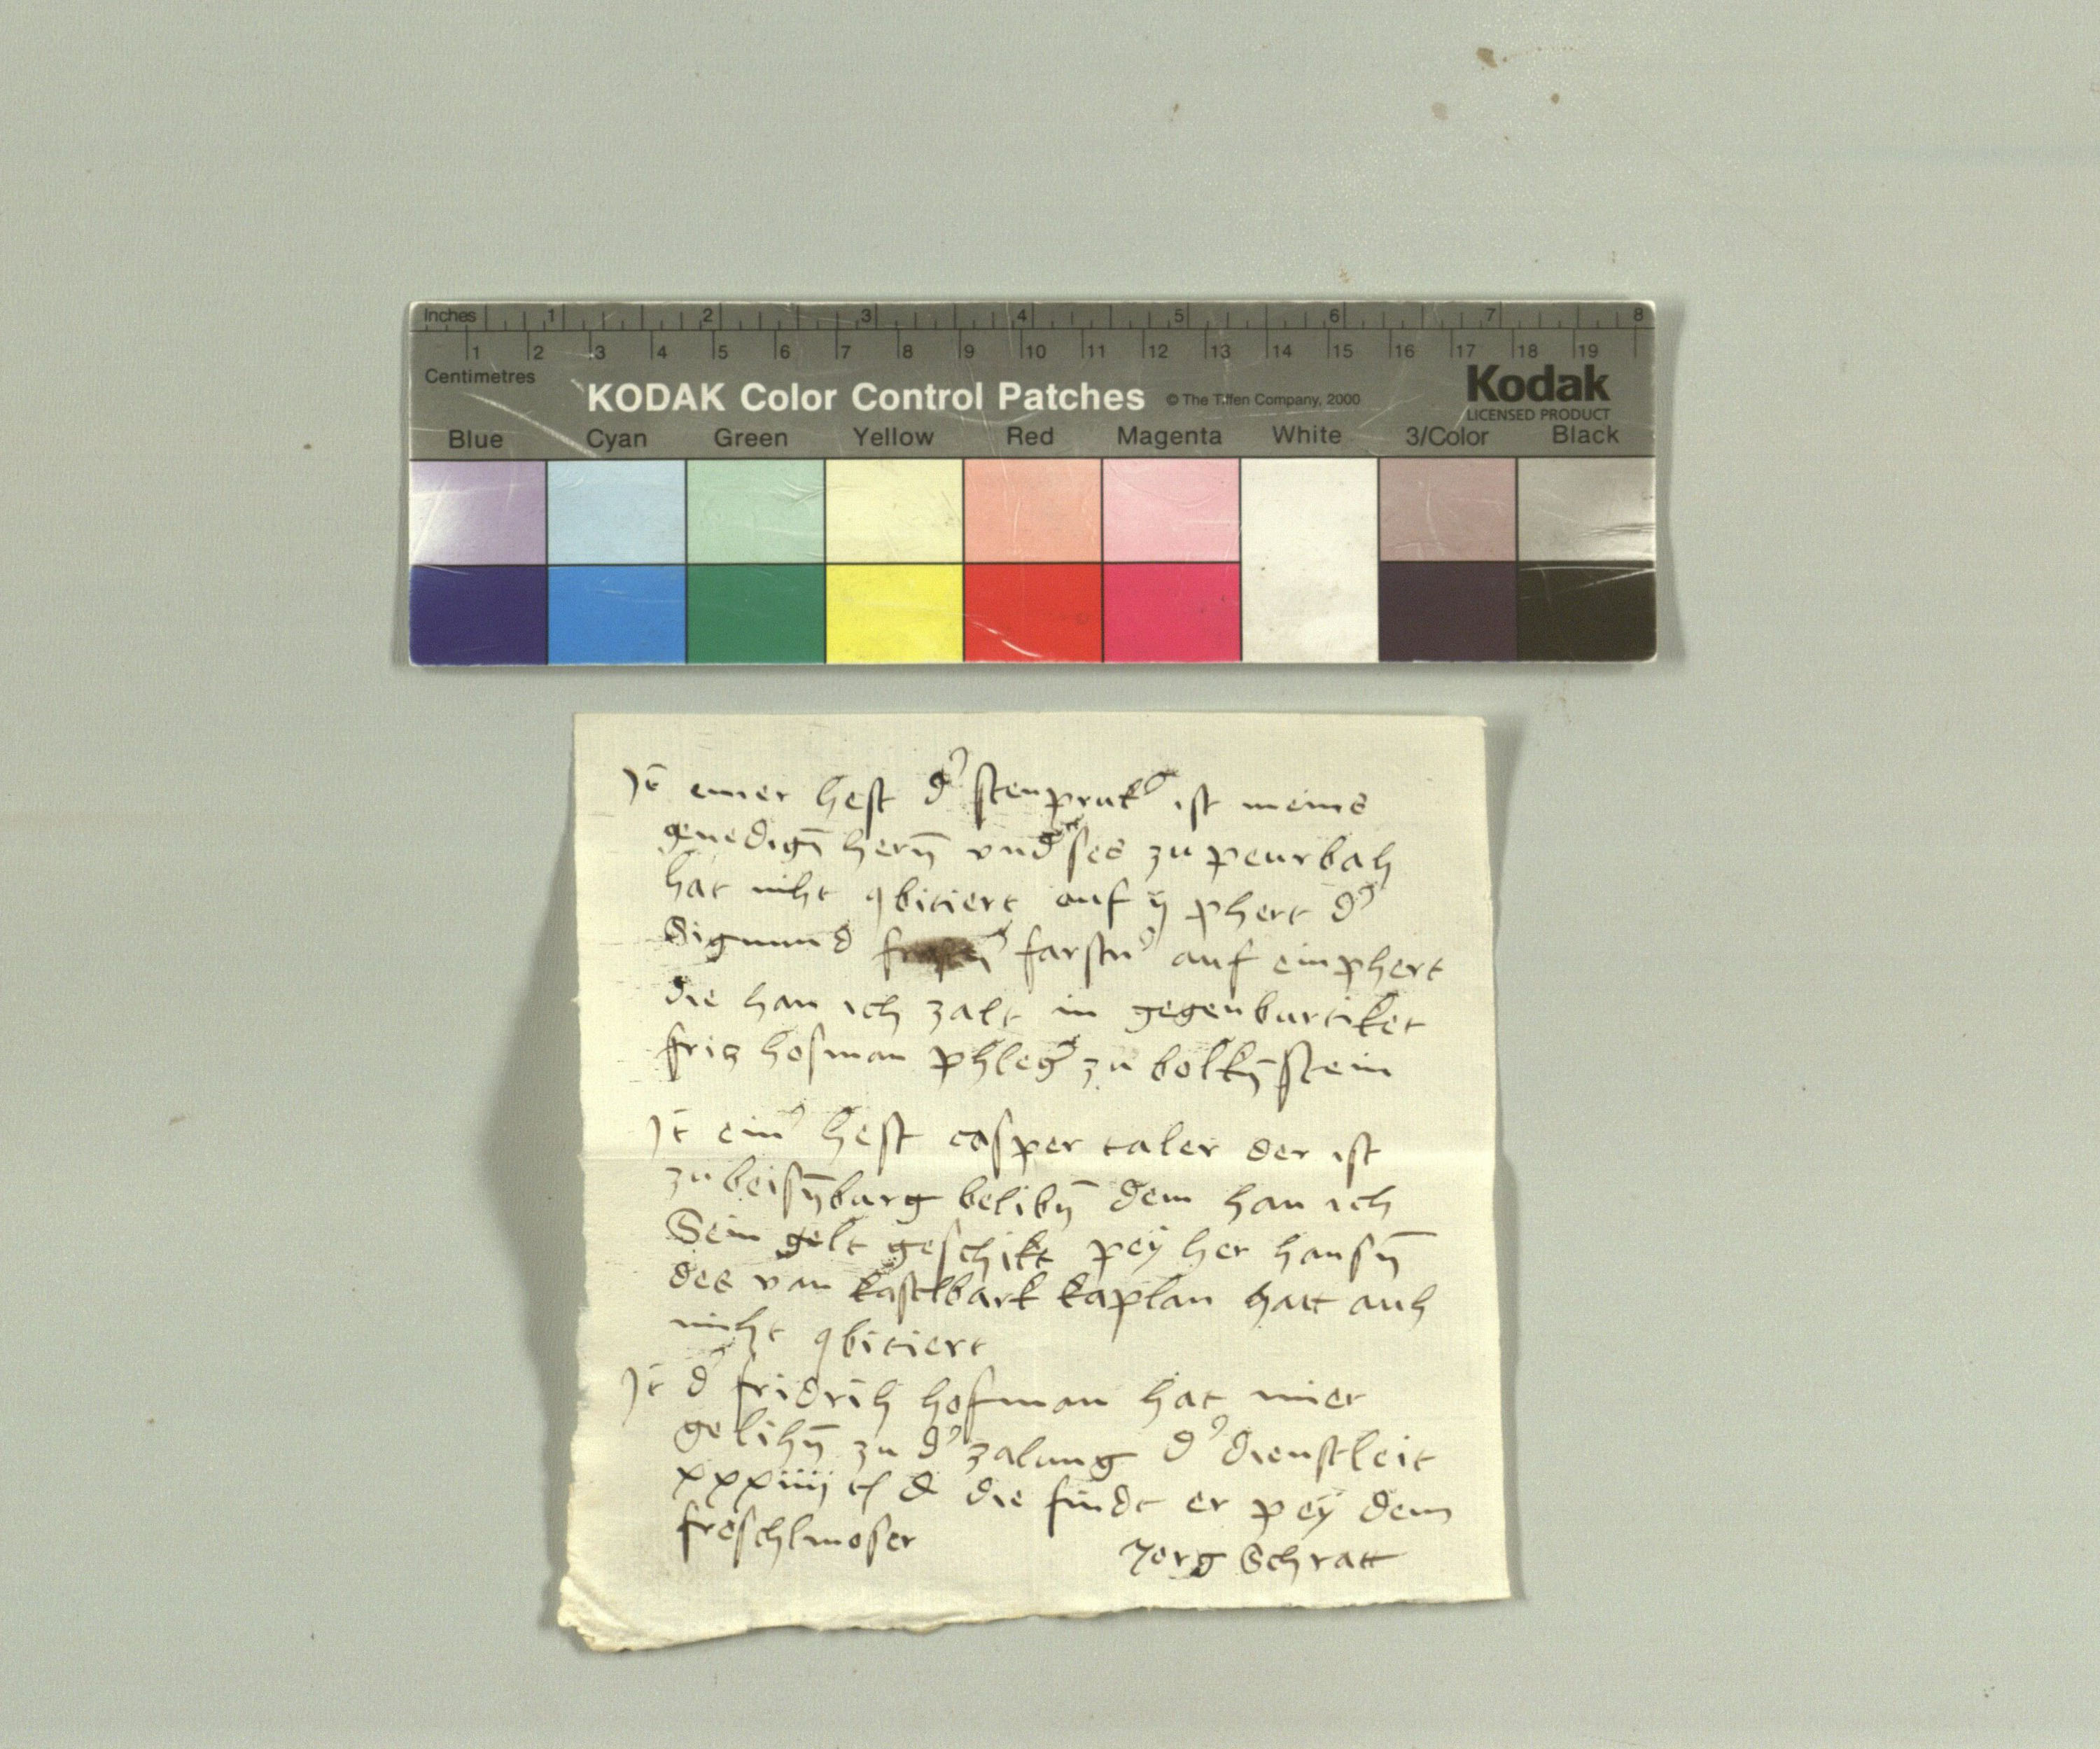 Inches 1 2 3 4 5 6 7 8
1 2 3 4 5 6 7 8 9 10 11 12 13 14 15 16 17 18 19
Centimetres
KODAK Color Control Patches © The Tiffen Company, 2000 Kodak
LICENSED PRODUCT
Blue Cyan Green Yellow Red Magenta White 3/Color Black
Jt̄ einer hest d' stenpruk' ist meins
genedign̄ hern̄ und'ses zu peurbah
hat niht qbitiert auf ij phert d'
Sigmund farstn' auf ein phert
die han ich zalt in gegenburtiket
friz hofman phleg' zu bolkn̄stein
Jt̄ ein' hest casper taler der ist
zu beisn̄burg belibn̄ dem han ich
Sein gelt geschikt pey her hansn̄
des van kastlbark kaplan hatt auh
niht qbitiert
Jt̄ d' fridrih hofman hat mier
gelihn̄ zu d' zalung d' dienstleit
xxxiiij die findt er pey dem
freschlmoser
Jorg Schratt